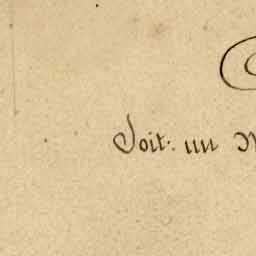 Soit: un